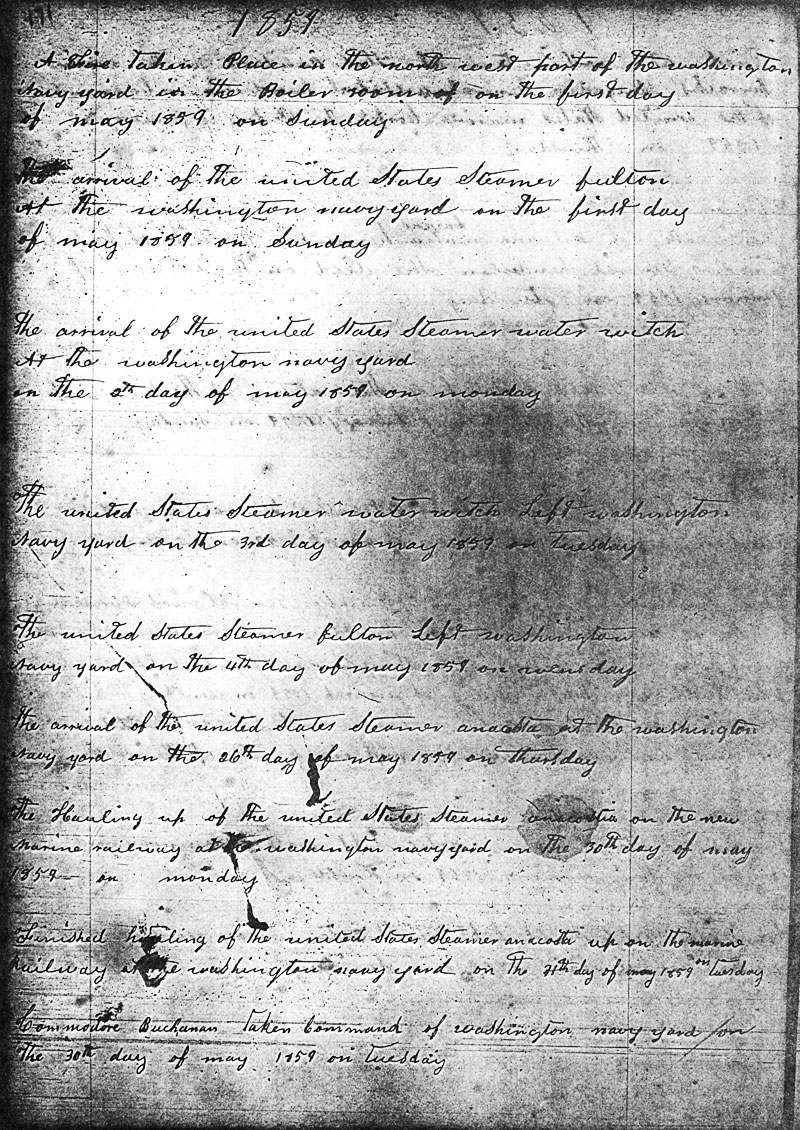 171
1859
A Fire taken Place in the north west part of the washington
Navy yard in the Boiler room of on the first day
of may 1859 on Sunday
the arrival of the united States Steamer fulton
At the washington navy yard on the first day
of may 1859 on Sunday
the arrival of the united States Steamer water witch
At the washington navy yard
on the 2th day of may 1859 on monday
The united States Steamer water witch Left washington
Navy yard on the 3rd day of may 1859 on Tuesday
The united States Steamer fulton Left washington
Navy yard on the 4th day of may 1859 on wensday
the arrival of the united States Steamer anacosta at the washington
Navy yard on the 26th day of may 1859 on thursday
the Hauling up of the united States Steamer anacostia on the new
marine railway at the washington navy yard on the 30th day of may
1859 on monday
Finished hauling of the united States Steamer anacosta up on the marine
railway at the washington navy yard on the 31th day of may 1859 on tuesday
Commodore Buchanan taken Command of washington navy yard on
the 30th day of may 1859 on tuesday